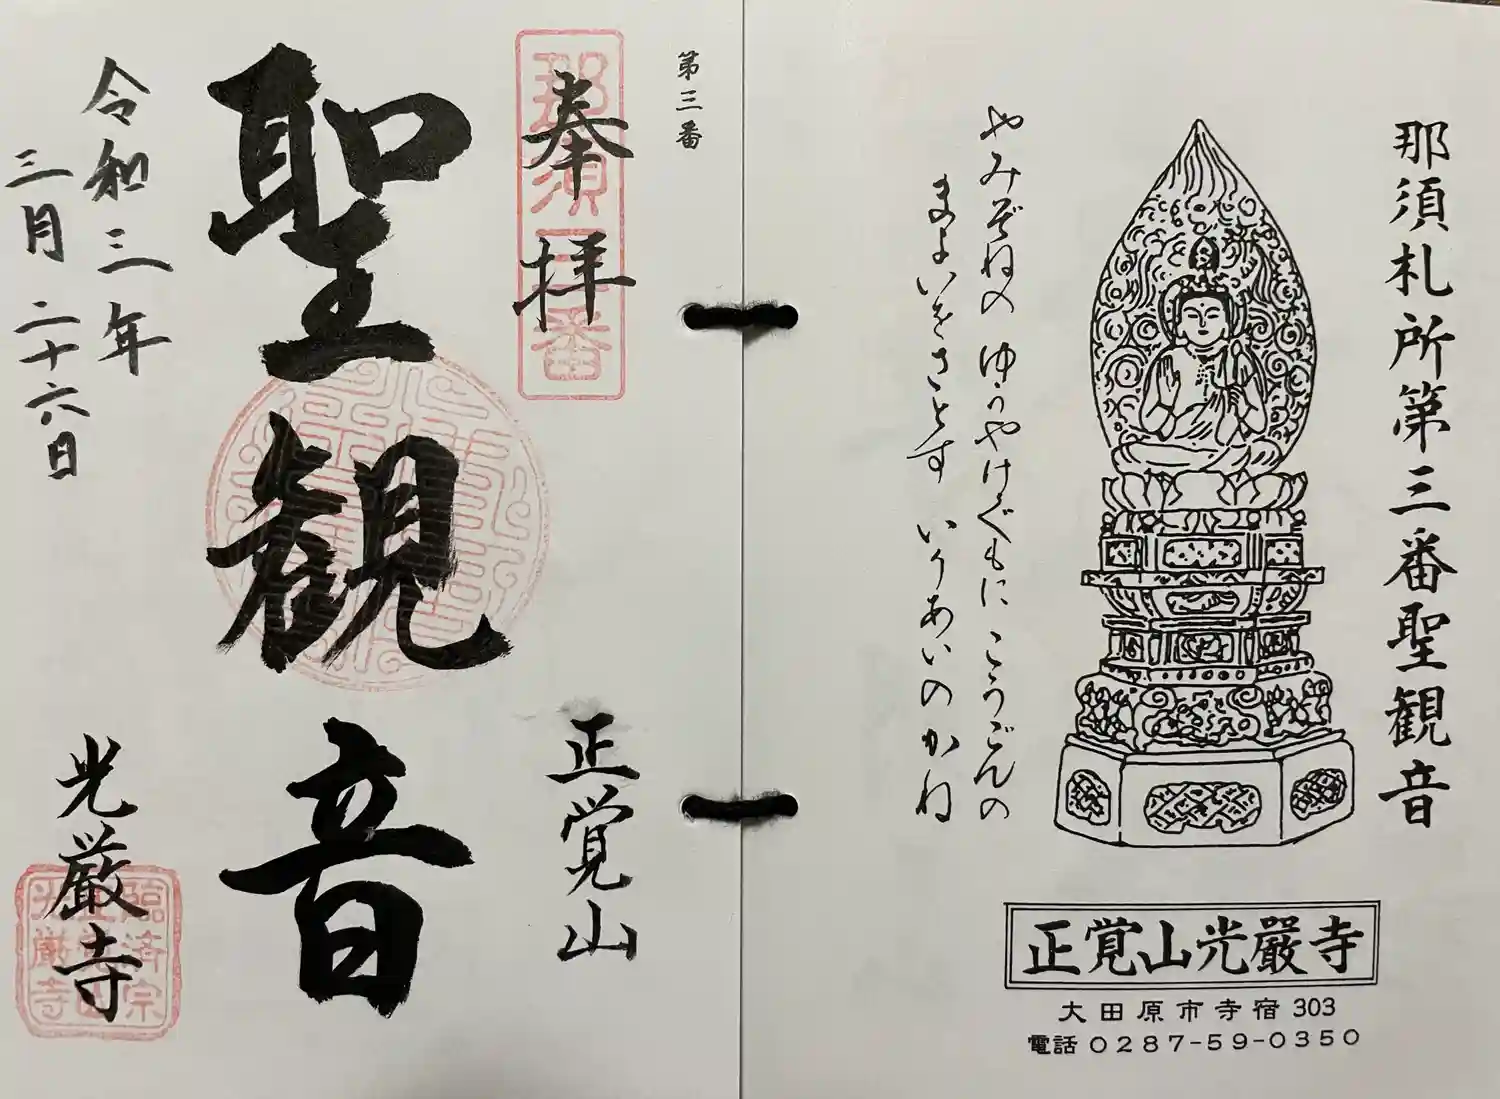 那須札所第三番聖観音
やみぞねの ゆうやけぐもに こうごんの
まよいをさとす いりあいのかね
正覚山光嚴寺
大田原市寺宿303
電話 0287-59-0350
第三番
奉拝
那須三番
正覚山
聖観音
令和三年
三月二十六日
光厳寺
臨済宗
正覚山
光厳寺